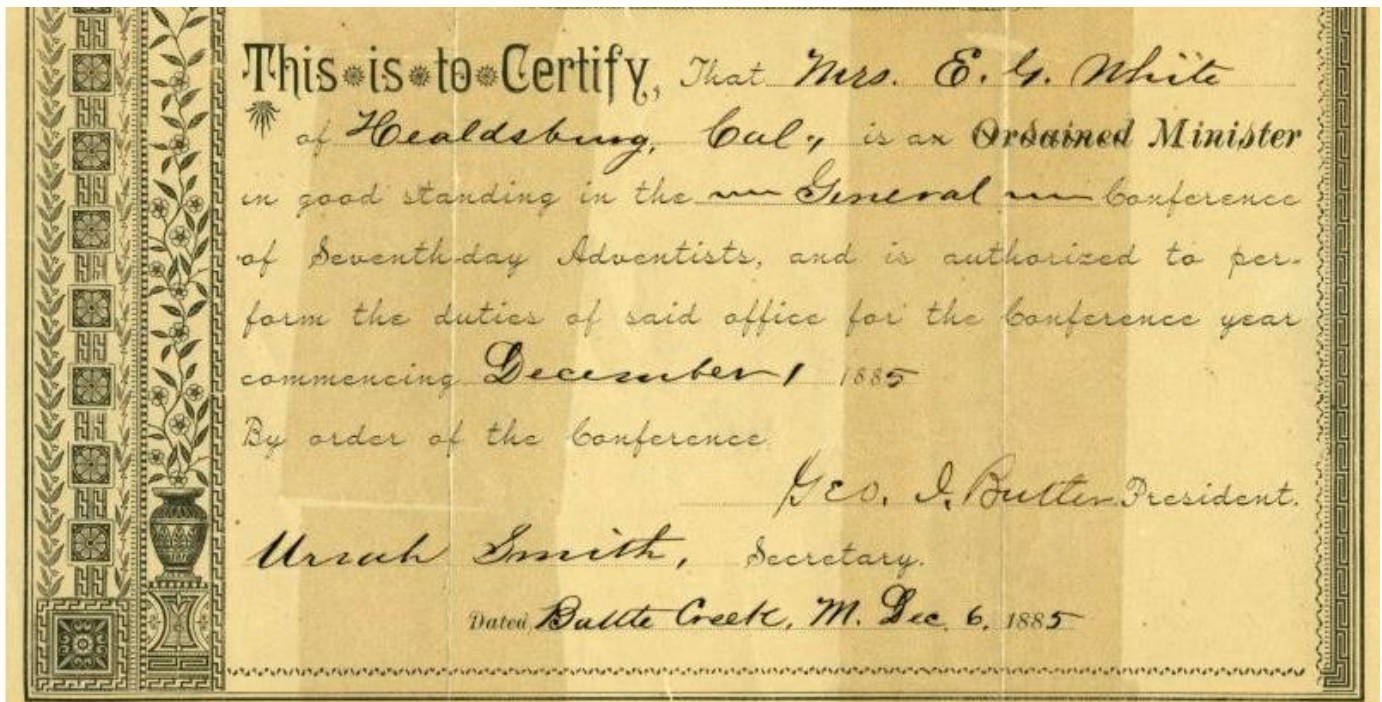 This is to Certify, That Mrs. E. G. White
of Healdsburg, Cal., is an Ordained Minister
in good standing in the General Conference
of Seventh-day Adventists, and is authorized to per-
form the duties of said office for the Conference year
commencing December 1 1885
By order of the Conference
Geo. I. Butler President.
Uriah Smith, Secretary.
Dated, Battle Creek, M. Dec. 6, 1885